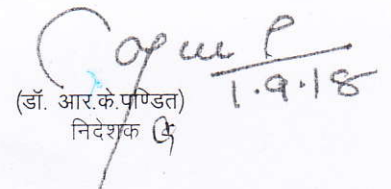 1.9.18
(डॉ. आर.के.पण्डित)
निदेशक